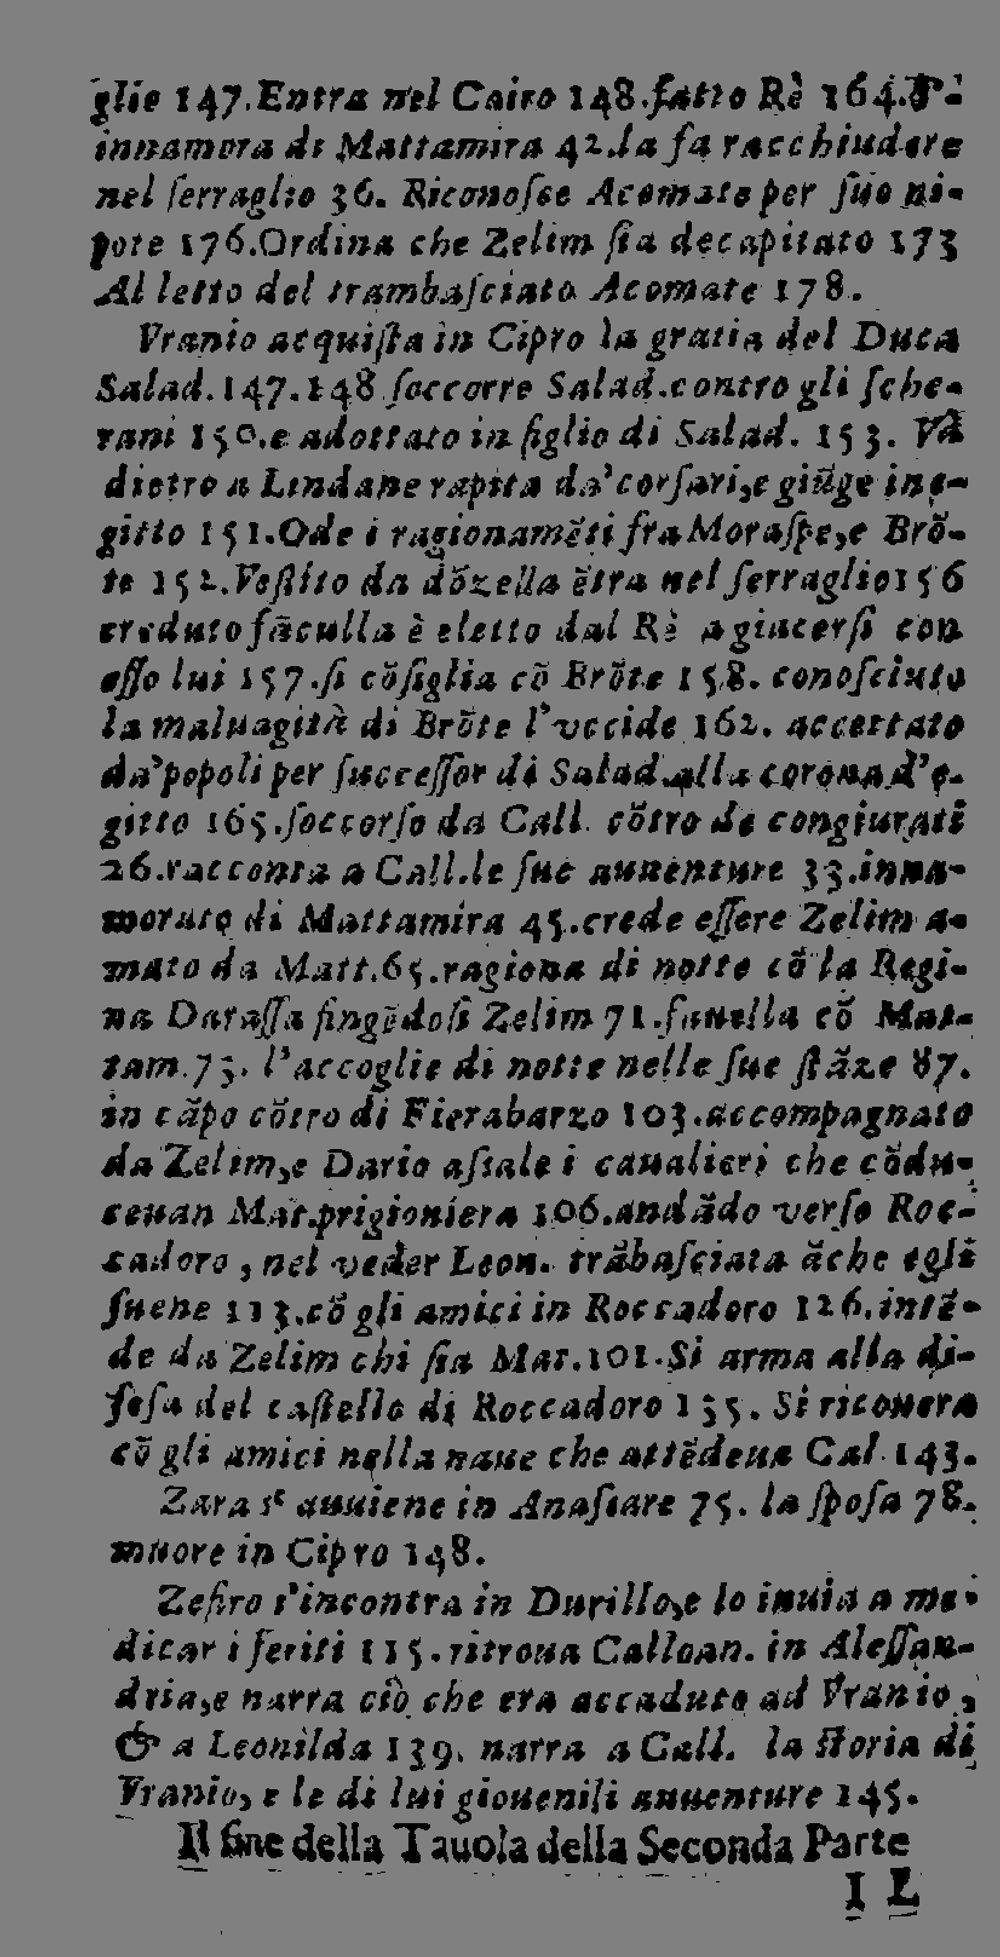 glie 147.Entra nel Cairo 148.fatto Rè 164.
innamora di Mattamira 42.la fa racchiudere
nel ſerraglio 36. Riconoſce Acomate per ſuo ni-
pote 176.Ordina che Zelim ſia decapitato 173
Al letto del trambaſciato Acomate 178.
Vranio acquiſta in Cipro la gratia del Duca
Salad.147.148 ſoccorre Salad.contro gli ſche-
rani 150.e adottato in figlio di Salad. 153. Và
dietro a Lindane rapita da'corſari,e giũge in e-
gitto 151.Ode i ragionamẽti fra Moraſpe,e Brõ-
te 152.Veſtito da dõzella ẽtra nel ſerraglio156
creduto fãculla è eletto dal Rè a giacerſi con
eſſo lui 157.ſi cõſiglia cõ Brõte 158. conoſciuto
la maluagità di Brõte l'vccide 162. accertato
da'popoli per ſucceſſor di Salad.alla corona d'e-
gitto 165.ſoccorſo da Call. cõtro de congiurati
26.racconta a Call.le ſue auuenture 33.inna-
morato di Mattamira 45.crede eſſere Zelim a-
mato da Matt.65.ragiona di notte cõ la Regi-
na Daraſſa fingẽdoſi Zelim 71.fauella cõ Mat-
tam.73. l'accoglie di notte nelle ſue ſtãze 87.
in cãpo cõtro di Fierabarzo 103.accompagnato
da Zelim,e Dario aſſale i caualieri che cõdu-
ceuan Mat.prigioniera 106.andãdo verſo Roc-
cadoro , nel veder Leon. trãbaſciata ãche egli
ſuene 113.cõ gli amici in Roccadoro 126.intẽ-
de da Zelim chi ſia Mat.101.Si arma alla di-
feſa del caſtello di Roccadoro 135. Si ricouera
cõ gli amici nella naue che attẽdeua Cal.143.
Zara s' auuiene in Anaſtare 75. la ſpoſa 78.
muore in Cipro 148.
Zefiro s'incontra in Durillo,e lo inuia a me-
dicar i feriti 115.ritroua Calloan. in Aleſſan-
dria,e narra ciò che era accaduto ad Vranio ,
& a Leonilda 139. narra a Call. la ſtoria di
Vranio, e le di lui giouenili auuenture 145.
Il fine della Tauola della Seconda Parte
I L